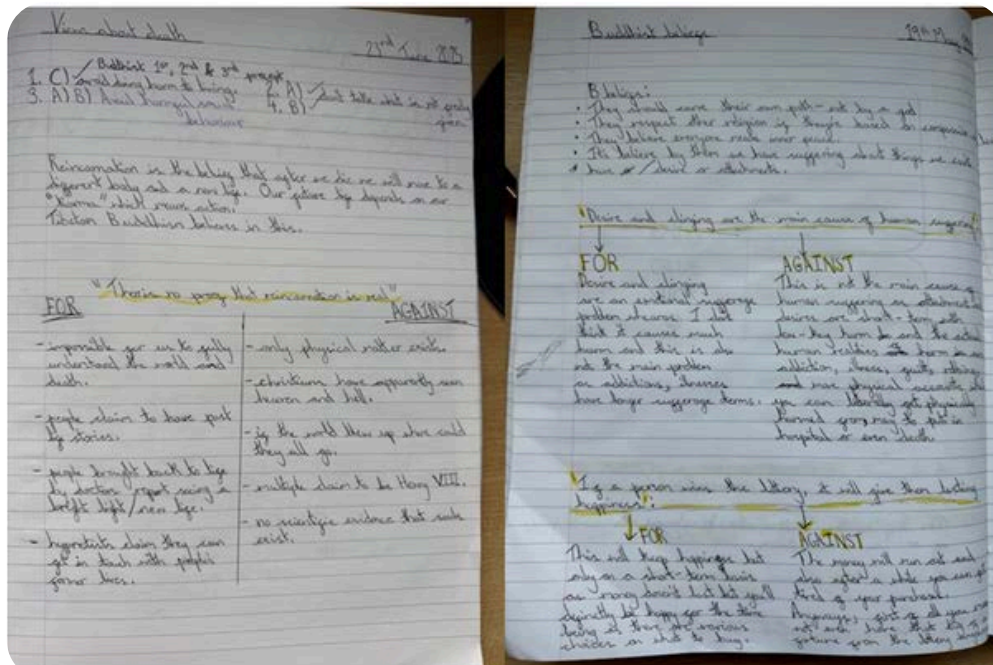 Views about death
23rd June 2025
1. C) ✓ Buddhist 1st, 2nd & 3rd precept
avoid doing harm to beings
2. A) ✓ don't take what is not freely
given
3. A) B) Avoid harmful
behaviour
4. B)
Reincarnation is the belief that after we die we will move to a
different body and a new life. Our future life depends on our
"Karma" which means action.
Tibetan Buddhism believes in this.
"There is no proof that reincarnation is real"
FOR
- impossible for us to fully
understand the world and
death.
- people claim to have past
life stories.
- people brought back to life
by doctors report seeing a
bright light/new life.
- hypnotists claim they can
get in touch with people's
former lives.
AGAINST
- only physical matter exists.
- christians have apparently seen
heaven and hell.
- if the world blew up where could
they all go.
- multiple claim to be Henry VIII.
- no scientific evidence that souls
exist.
Buddhist beliefs
19th May
Beliefs:
• They should carve their own path - not by a god
• They respect other religion if they're based on compassion
• They believe everyone needs inner peace.
• It's believe by them we have suffering about things we can't
have or / desire or attachments.
"Desire and clinging are the main cause of human suffering"
FOR
Desire and clinging
are an emotional
problem whereas I don't
think it causes much
harm and this is also
not the main problem
as addictions, illnesses
have longer terms.
AGAINST
This is not the main cause of
human suffering as attachment
desires are short-term with
low-key harm and the actual
human realities harm
addiction, illness, guilt,
and more physical
you can literally get physically
harmed to put in
hospital or even death.
"If a person wins the lottery, it will give them lasting
happiness".
FOR
This will keep happiness but
only on a short-term basis
as money doesn't last but you'll
definitely be happy for the time
being as there are various
choices on what to buy.
AGAINST
The money will run out and
also after a while you can get
tired of your purchase.
Anyways, first of all you
not even have that big
fortune from the lottery